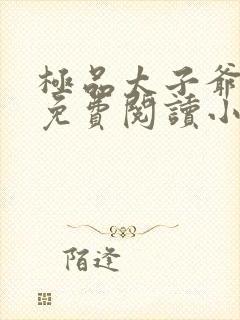 極品太子爺
免費閱讀小
陌逢